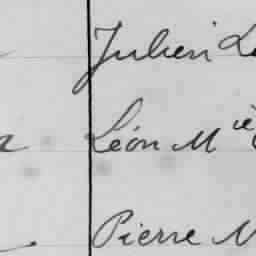 Julien
Léon M
Pierre